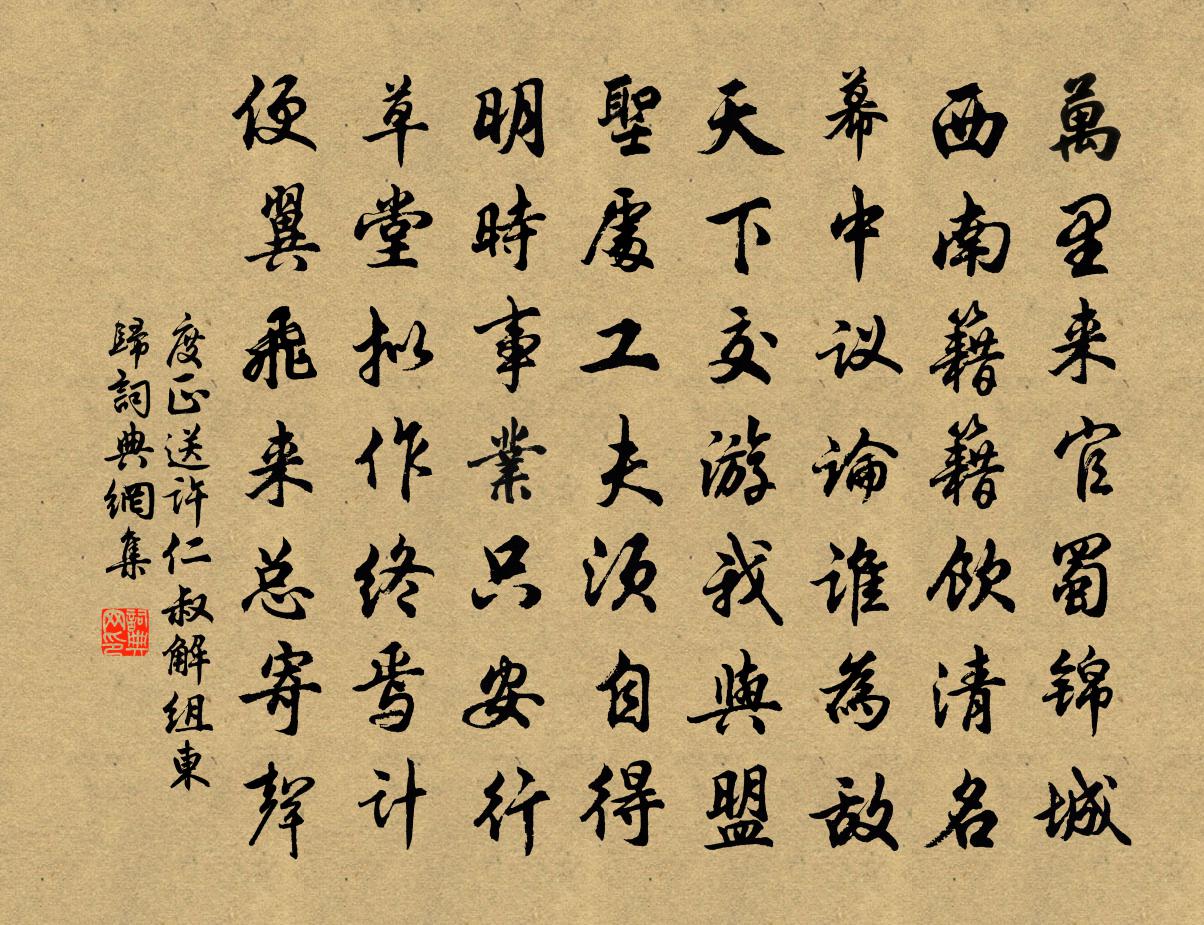 萬里来官蜀锦城
西南籍籍飲清名
幕中议論谁為敌
天下交游我與盟
聖處工夫须自得
明時事業只安行
草堂拟作终焉计
便翼飛来总寄聲
度正送許仁叔解组東
歸詞典網集
詞典网印